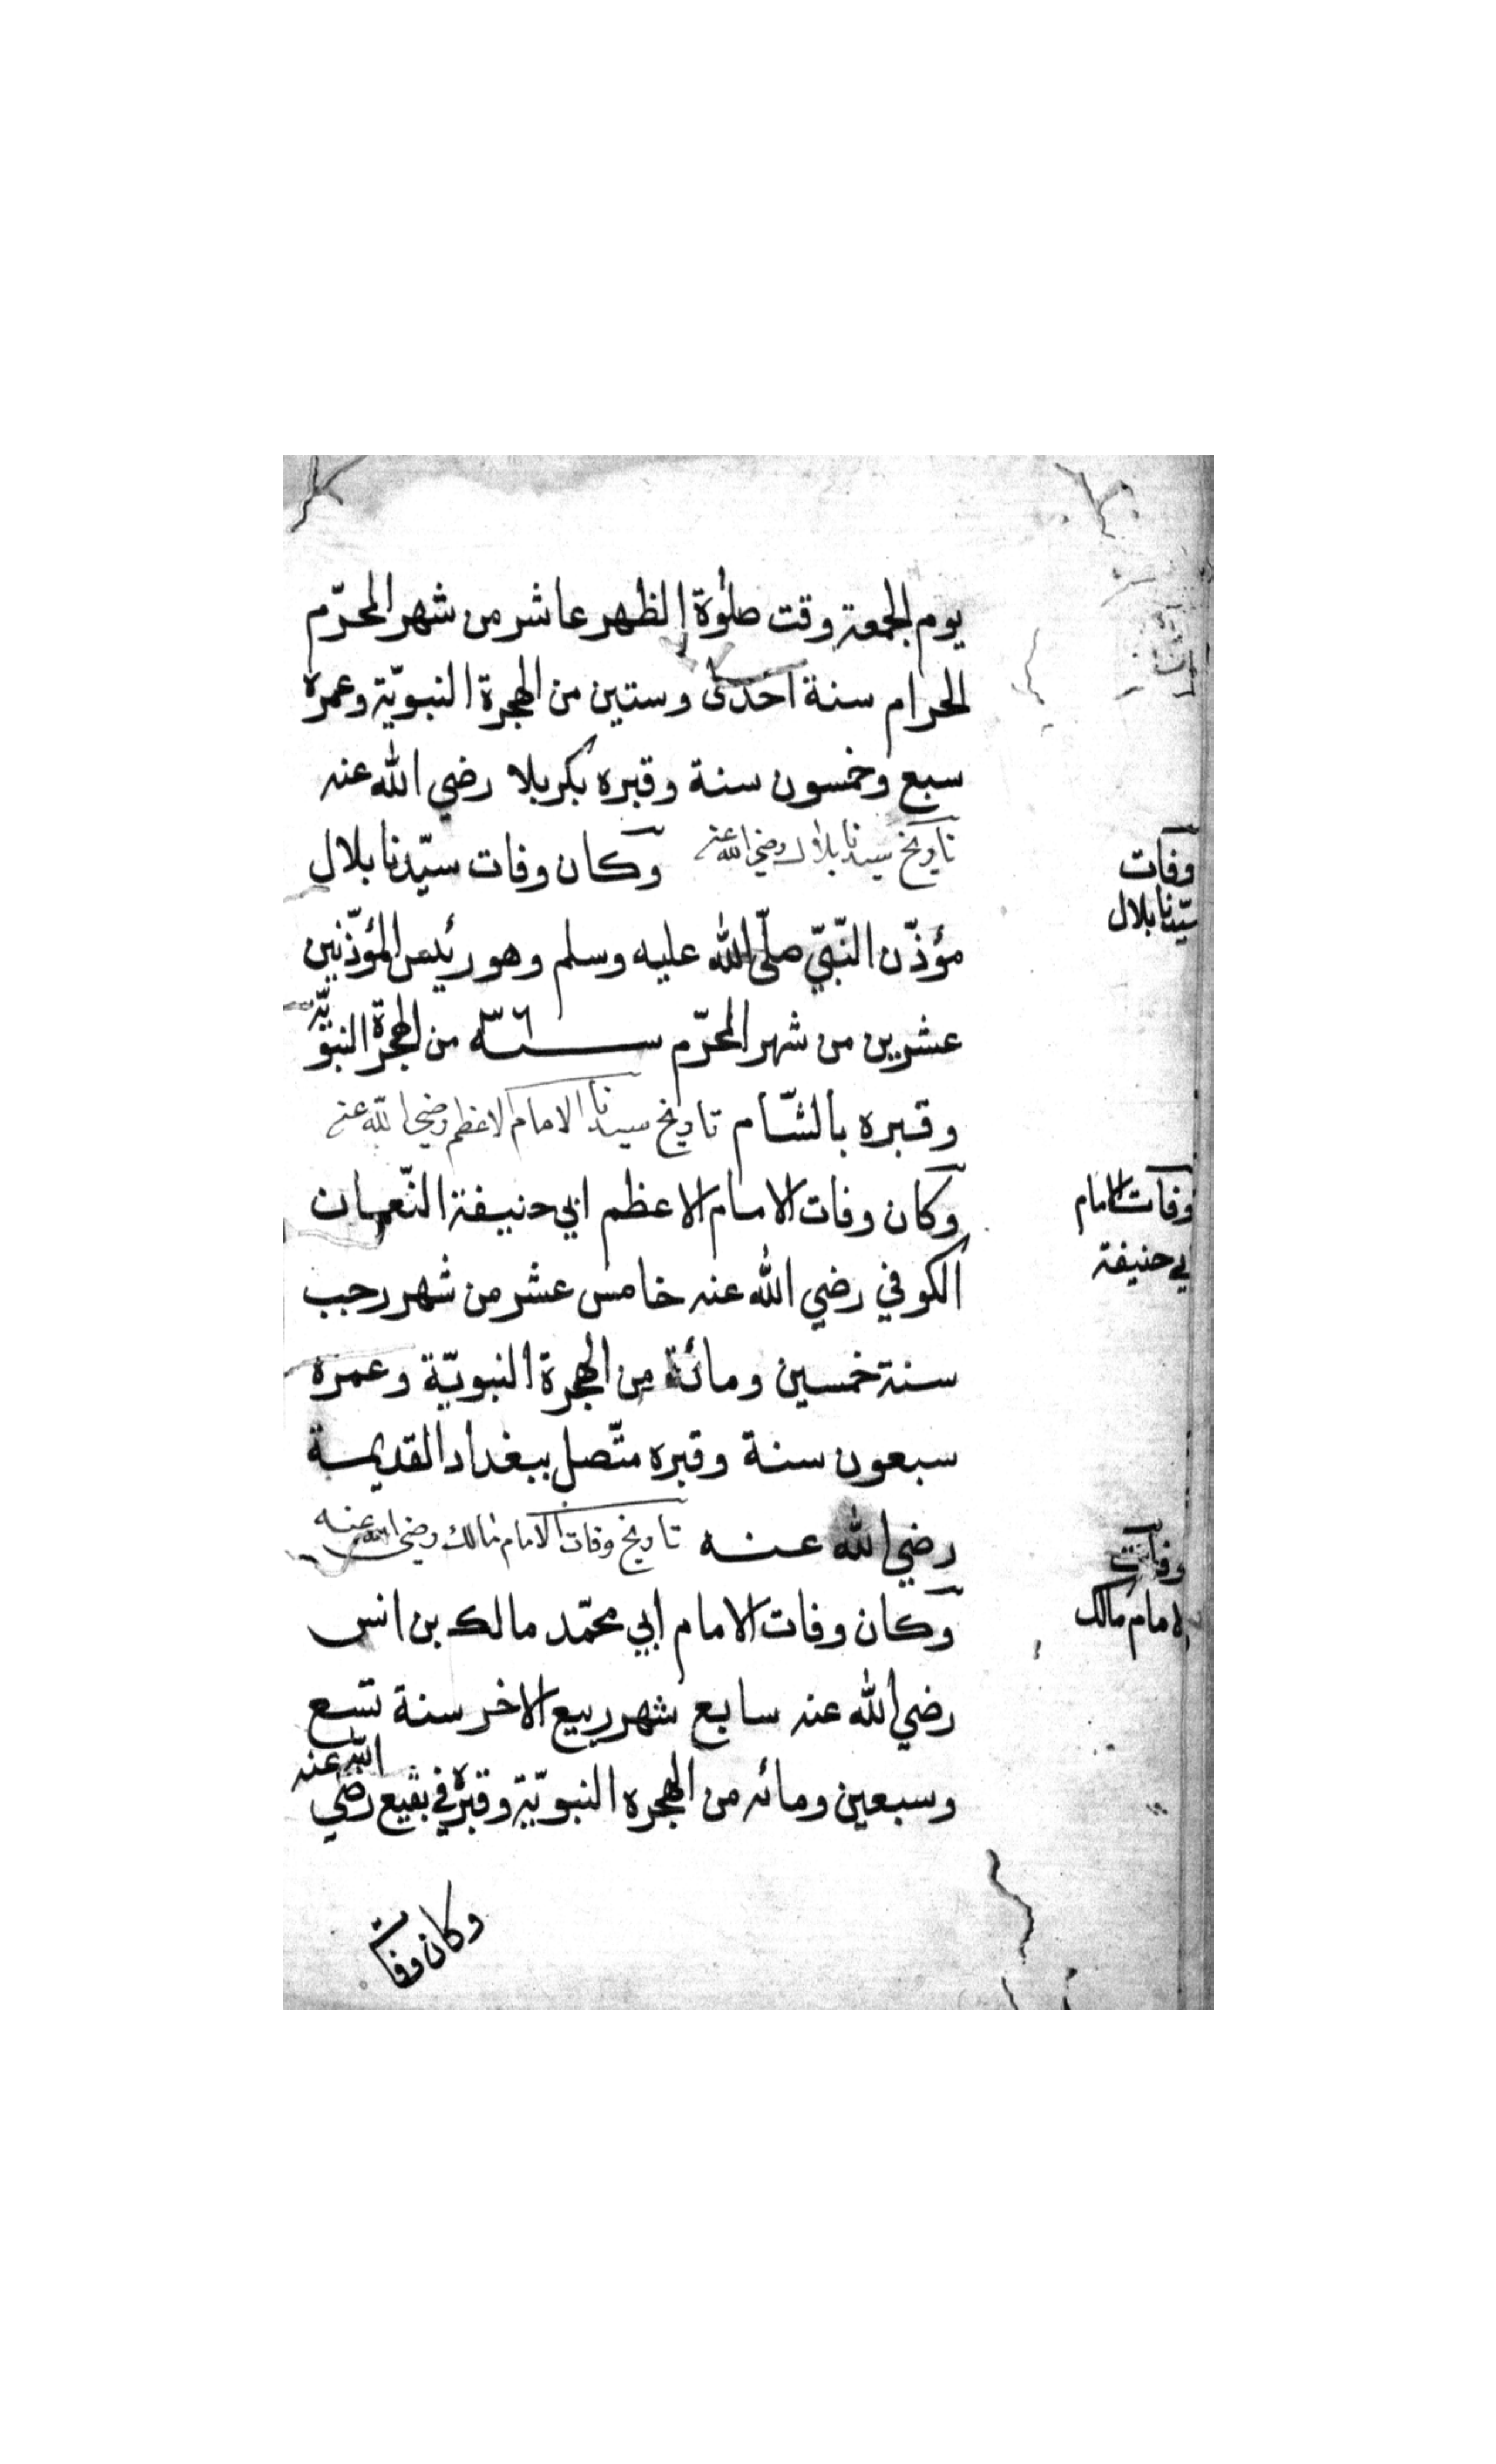 يوم الجمعة وقت صلوة الظهر عاشر من شهر المحرّم
الحرام سنة احدى وستين من الهجرة النبويّة وعمره
سبع وخمسون سنة وقبره بكربلا رضي الله عنه
تاريخ سيدنا بلال رضي الله عنه وكان وفات سيّدنا بلال
مؤذّن النّبيّ صلّى الله عليه وسلم وهو رئيس المؤذّنين
عشرين من شهر المحرّم سنة ٣٦ من الهجرة النبويّة
وقبره بالشّام تاريخ سيدنا الامام الاعظم رضي الله عنه
وكان وفات الامام الاعظم ابي حنيفة النّعمان
الكوفي رضي الله عنه خامس عشر من شهر رجب
سنة خمسين ومائة من الهجرة النبويّة وعمره
سبعون سنة وقبره متّصل ببغداد القديمة
رضي الله عنه تاريخ وفات الامام مالك رضي الله عنه
وكان وفات الامام ابي محمّد مالك بن انس
رضي الله عنه سابع شهر ربيع الاخر سنة تسع
وسبعين ومائه من الهجره النبويّة وقبره في بقيع رضي الله عنه
وكان وفات
وفات
سيّدنا بلال
وفات الامام
بي حنيفة
وفات
لامام مالك